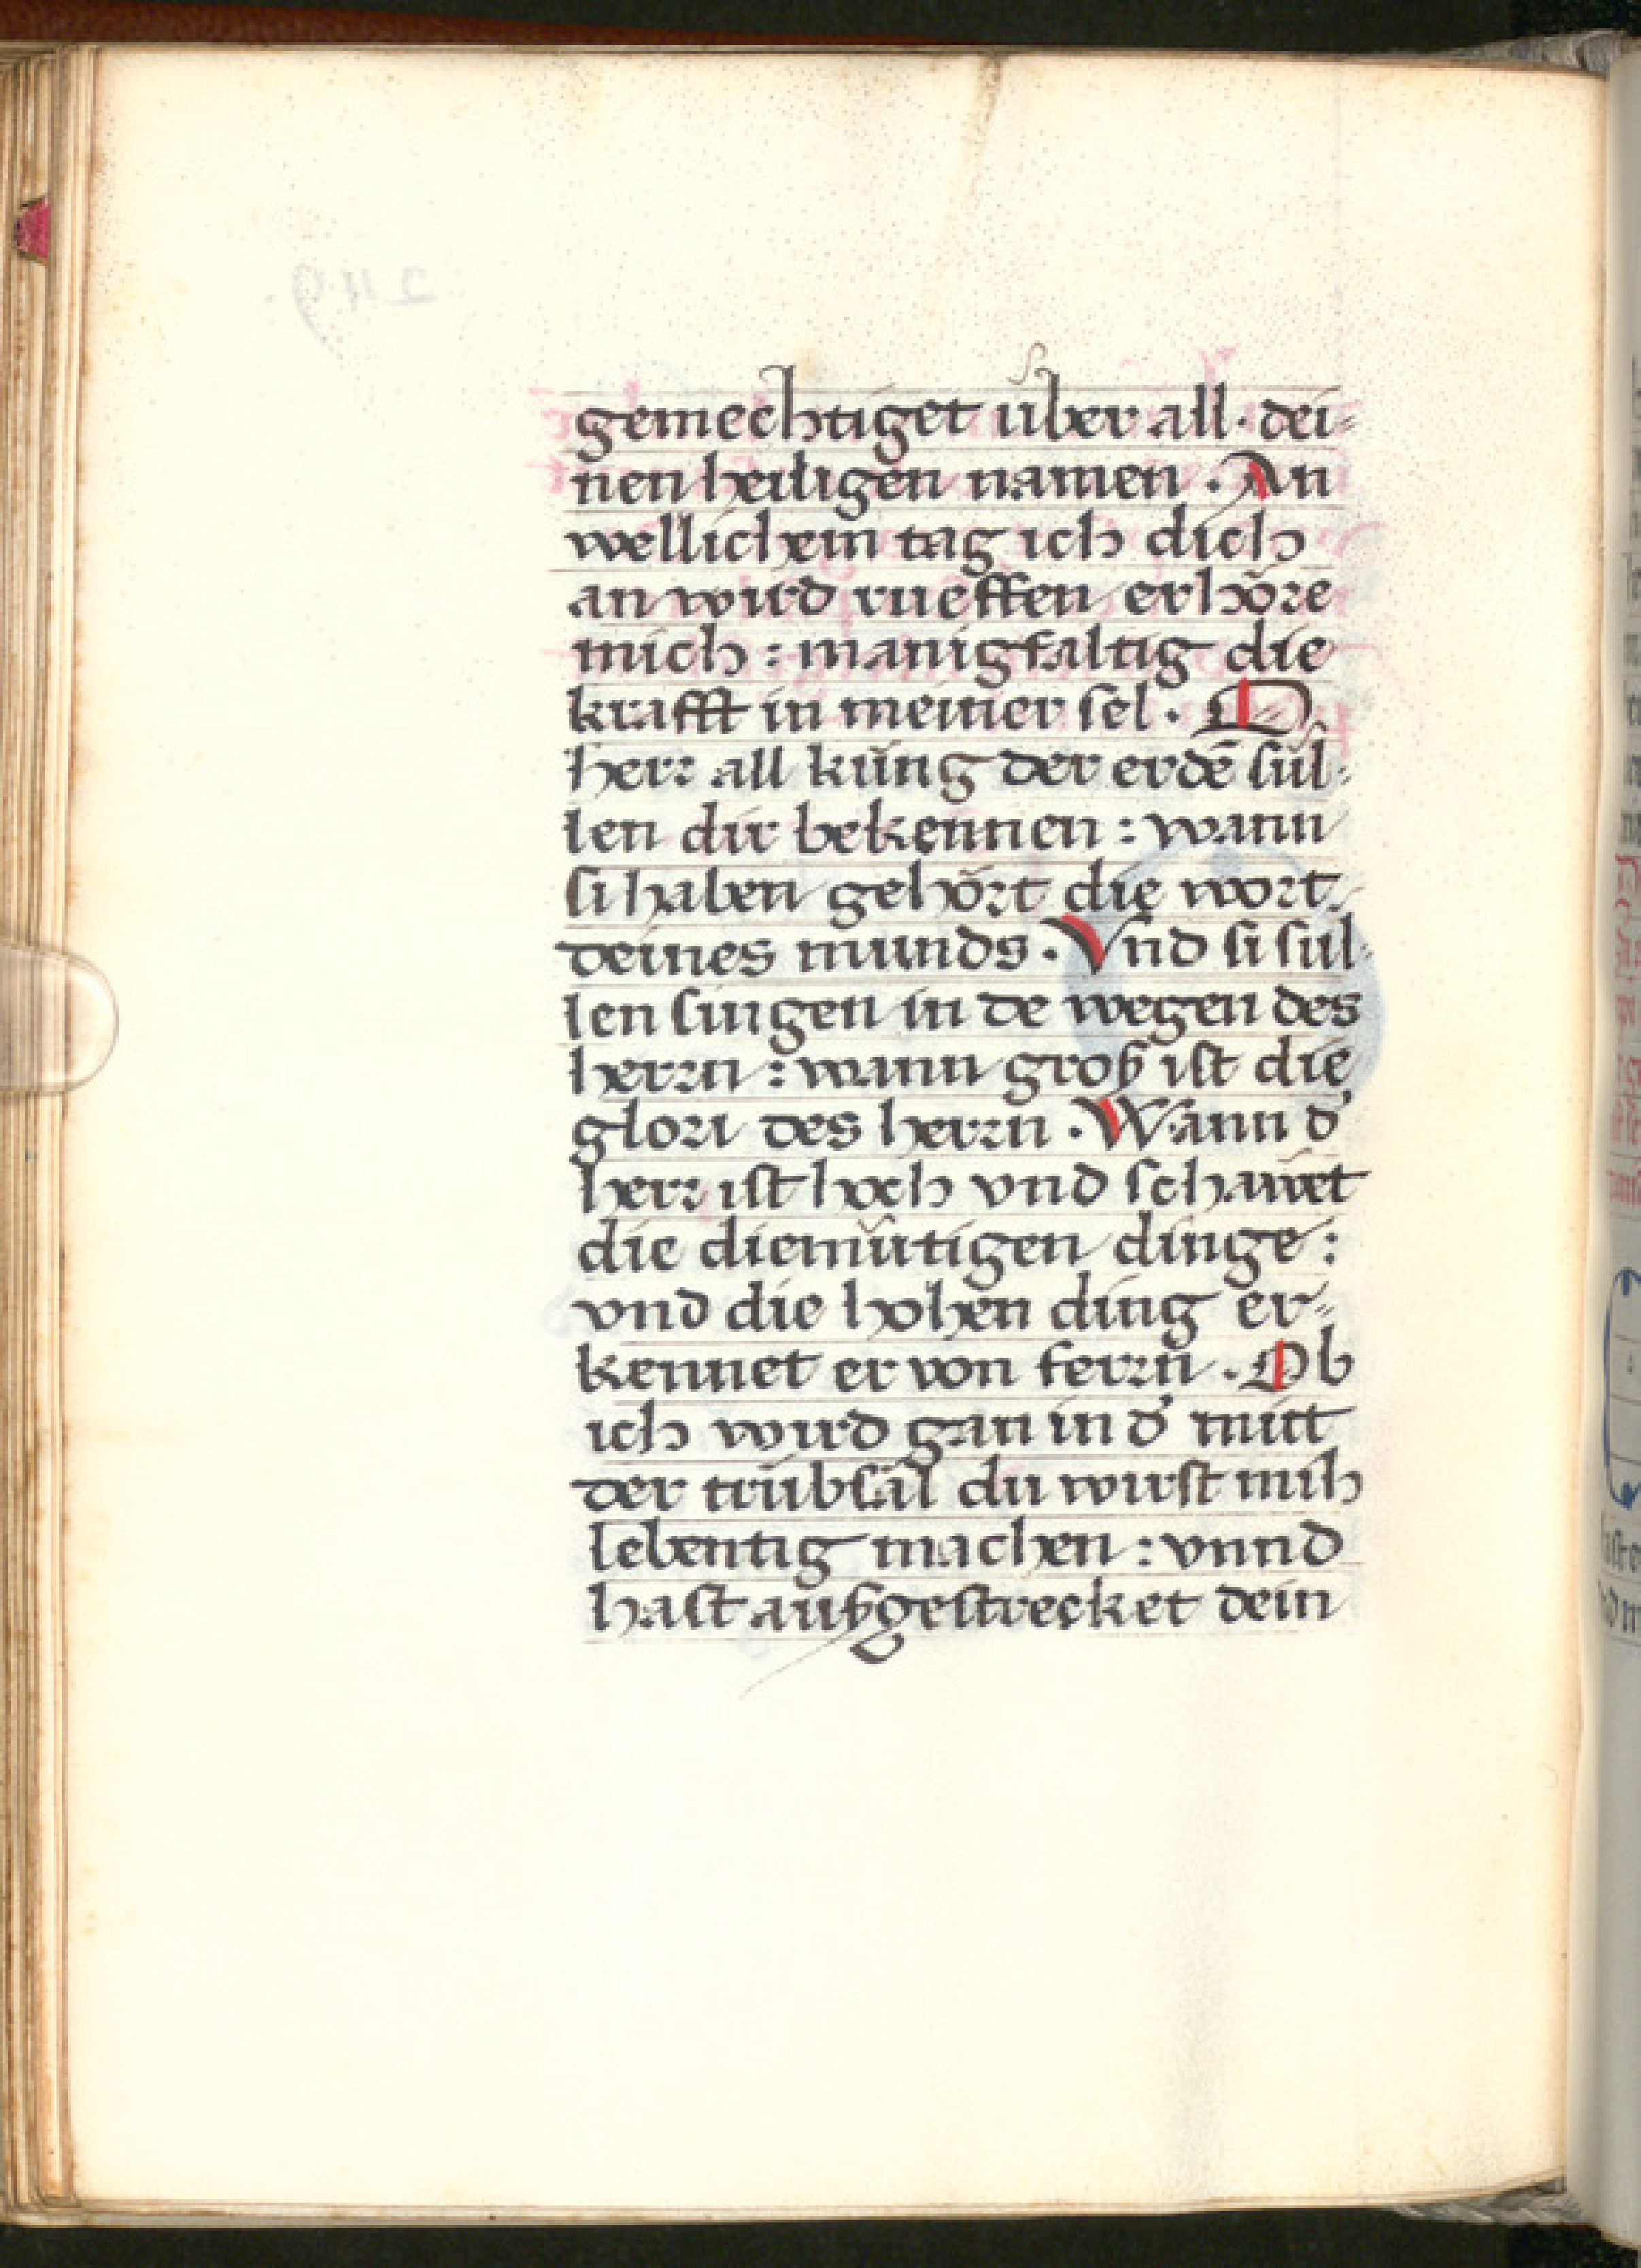 gemechtiget über all· dei⸗
nen heiligen namen · An
wellichem tag ich dich
an wird rueffen erhöre
mich : manigfaltig die
krafft in meiner sel · O
herr all küng der erdē sül⸗
len dir bekennen : wann
si haben gehört die wort
deines munds · Vnd si sül⸗
len singen in de wegen des
herrn : wann groß ist die
glori des herrn · Wann d'
herr ist hoch vnd schawet
die diemütigen dinge :
vnd die hohen ding er⸗
kennet er von ferrn · Ob
ich wird gan in d' mitt
der trübsal du wirst mih
lebentig machen : vnnd
hast außgestrecket dein